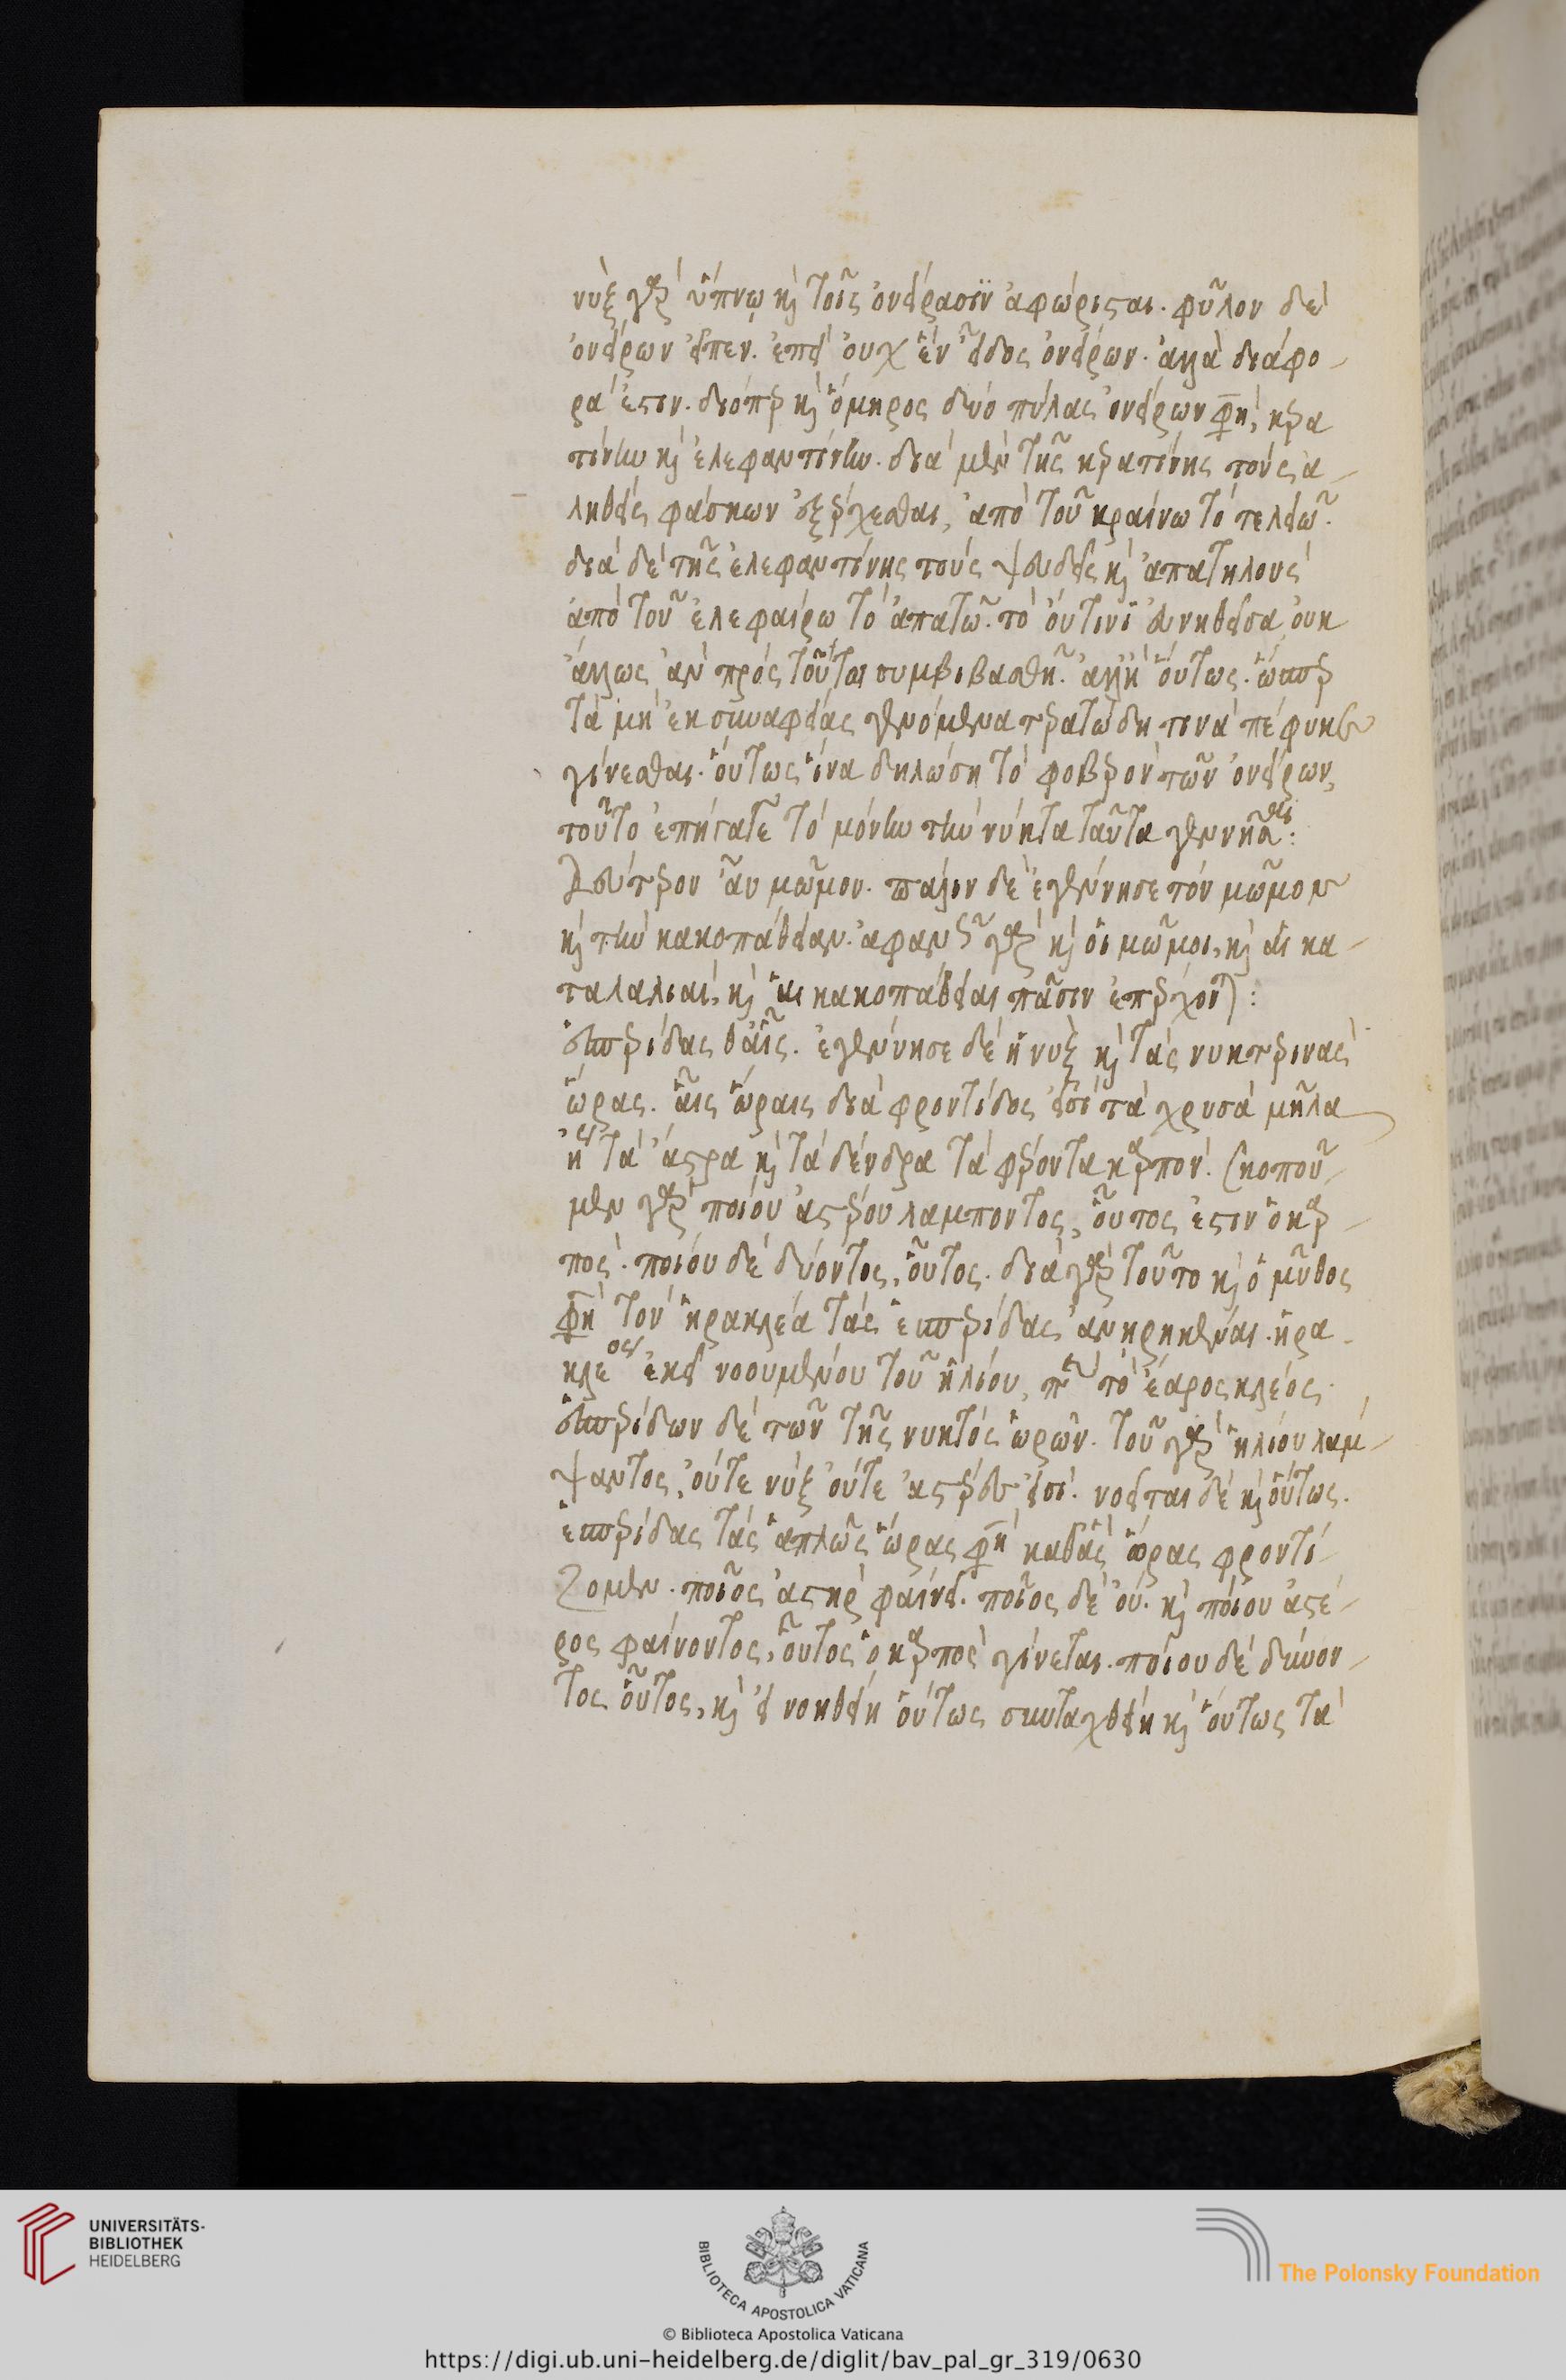 νὺξ γὰρ ὕπνῳ καὶ τοῖς ὀνείρασιν ἀφώρισται. φῦλον δὲ
ὀνείρων εἶπεν. ἐπεὶ οὐχ ἓν εἶδος ὀνείρων. ἀλλὰ διάφο-
ρά ἐστιν. διόπερ καὶ ὅμηρος δύο πύλας ὀνείρων φησὶ, κερα
τίνην καὶ ἐλεφαντίνην. διὰ μὲν τῆς κερατίνης τοὺς ἀ-
ληθεῖς φάσκων ἐξέρχεσθαι, ἀπὸ τοῦ κραίνω τὸ τελειῶ.
διὰ δὲ τῆς ἐλεφαντίνης τοὺς ψευδεῖς καὶ ἀπατηλοὺς
ἀπὸ τοῦ ἐλεφαίρω τὸ ἀπατῶ. τὸ οὔτινι εὐνηθεῖσα οὐκ
ἄλλως ἂν πρὸς τοῦτο συμβιβασθῇ. ἀλλ' ἢ οὕτως. ὥσπερ
τὰ μὴ ἐκ συναφείας γενόμενα τερατώδη τινὰ πέφυκε
γίνεσθαι. οὕτως ἵνα δηλώσῃ τὸ φοβερὸν τῶν ὀνείρων,
τοῦτο ἐπήγαγε τὸ μόνην τὴν νύκτα ταῦτα γεννῆσαι:
Δεύτερον αὖ μῶμον. πάλιν δὲ ἐγέννησε τὸν μῶμον
καὶ τὴν κακοπάθειαν. ἀφανῶς γὰρ καὶ οἱ μῶμοι, καὶ αἱ κα-
ταλαλιαὶ, καὶ αἱ κακοπάθειαι πᾶσιν ἐπέρχονται:
ἑσπερίδας θ' αἷς. ἐγέννησε δὲ ἡ νὺξ καὶ τὰς νυκτερινὰς
ὥρας. αἷς ὥραις διὰ φροντίδος εἰσὶ τὰ χρυσᾶ μῆλα
ἤτοι τὰ ἄστρα καὶ τὰ δένδρα τὰ φέροντα καρπόν. σκοποῦ-
μεν γὰρ ποίου ἀστέρου λάμποντος, οὗτος ἐστιν ὁ καρ-
πός. ποίου δὲ δύοντος, οὗτος. διὰ γὰρ τοῦτο καὶ ὁ μῦθος
φησὶ τὸν ἡρακλέα τὰς ἑσπερίδας ἀνῃρηκέναι. ἡρα-
κλέους ἐκεῖ νοουμένου τοῦ ἡλίου, παρὰ τὸ ἔαρος κλέος.
ἑσπερίδων δὲ τῶν τῆς νυκτὸς ὡρῶν. τοῦ γὰρ ἡλίου λάμ-
ψαντος, οὔτε νὺξ οὔτε ἀστέρες εἰσί. νοεῖται δὲ καὶ οὕτως.
ἑσπερίδας τὰς ἁπλῶς ὥρας φησὶ καθ' ἃς ὥρας φροντί-
ζομεν. ποῖος ἀστὴρ φαίνει. ποῖος δὲ οὔ. καὶ ποίου ἀστέ-
ρος φαίνοντος, οὗτος ὁ καρπὸς γίνεται. ποίου δὲ δύνον-
τος οὗτος, καὶ εἰ νοηθείη οὕτως συνταχθείη καὶ οὕτως τὰ
UNIVERSITÄTS-
BIBLIOTHEK
HEIDELBERG
BIBLIOTECA APOSTOLICA VATICANA
The Polonsky Foundation
© Biblioteca Apostolica Vaticana
https://digi.ub.uni-heidelberg.de/diglit/bav_pal_gr_319/0630